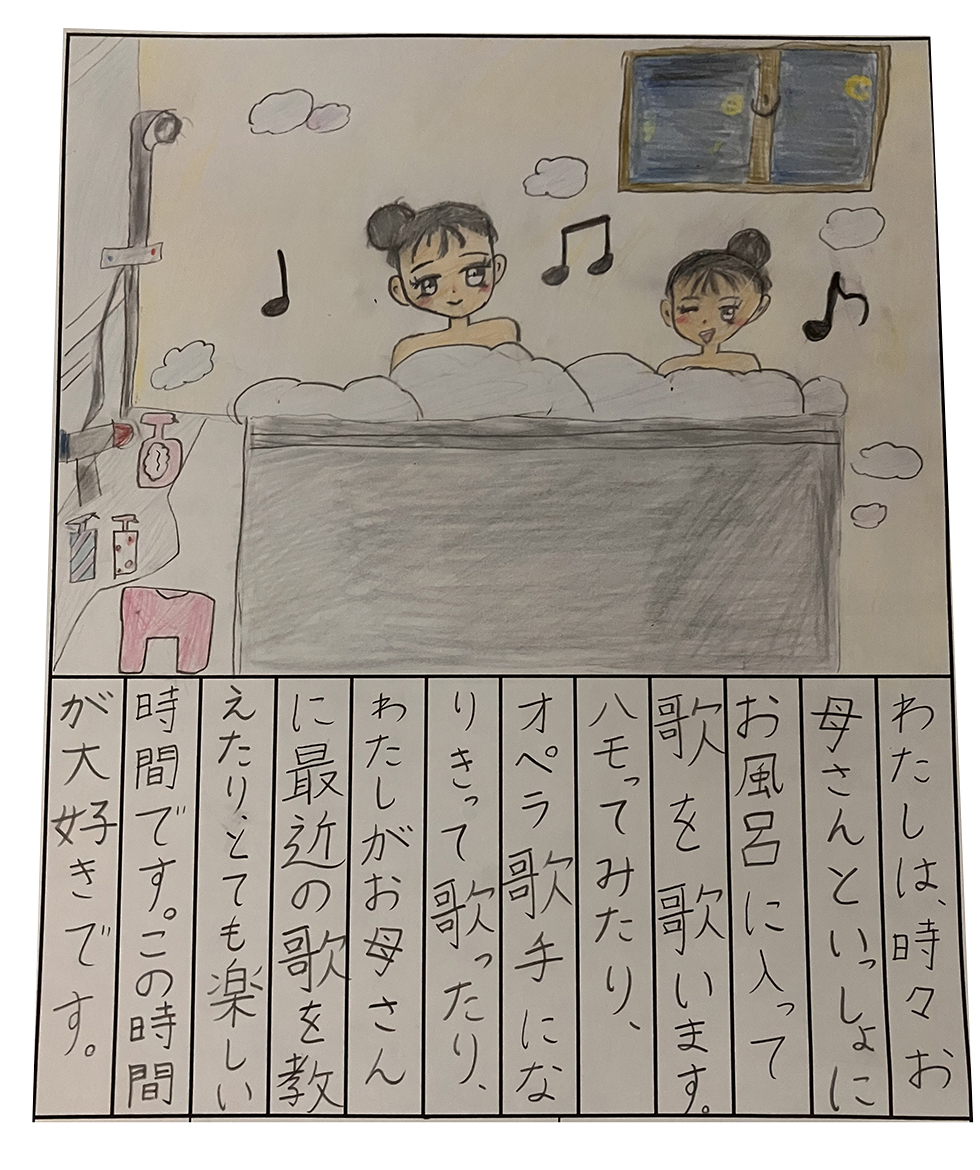 わたしは、時々お
母さんといっしょに
お風呂に入って
歌を歌います。
ハモってみたり、
オペラ歌手にな
りきって歌ったり、
わたしがお母さん
に最近の歌を教
えたり、とても楽しい
時間です。この時間
が大好きです。